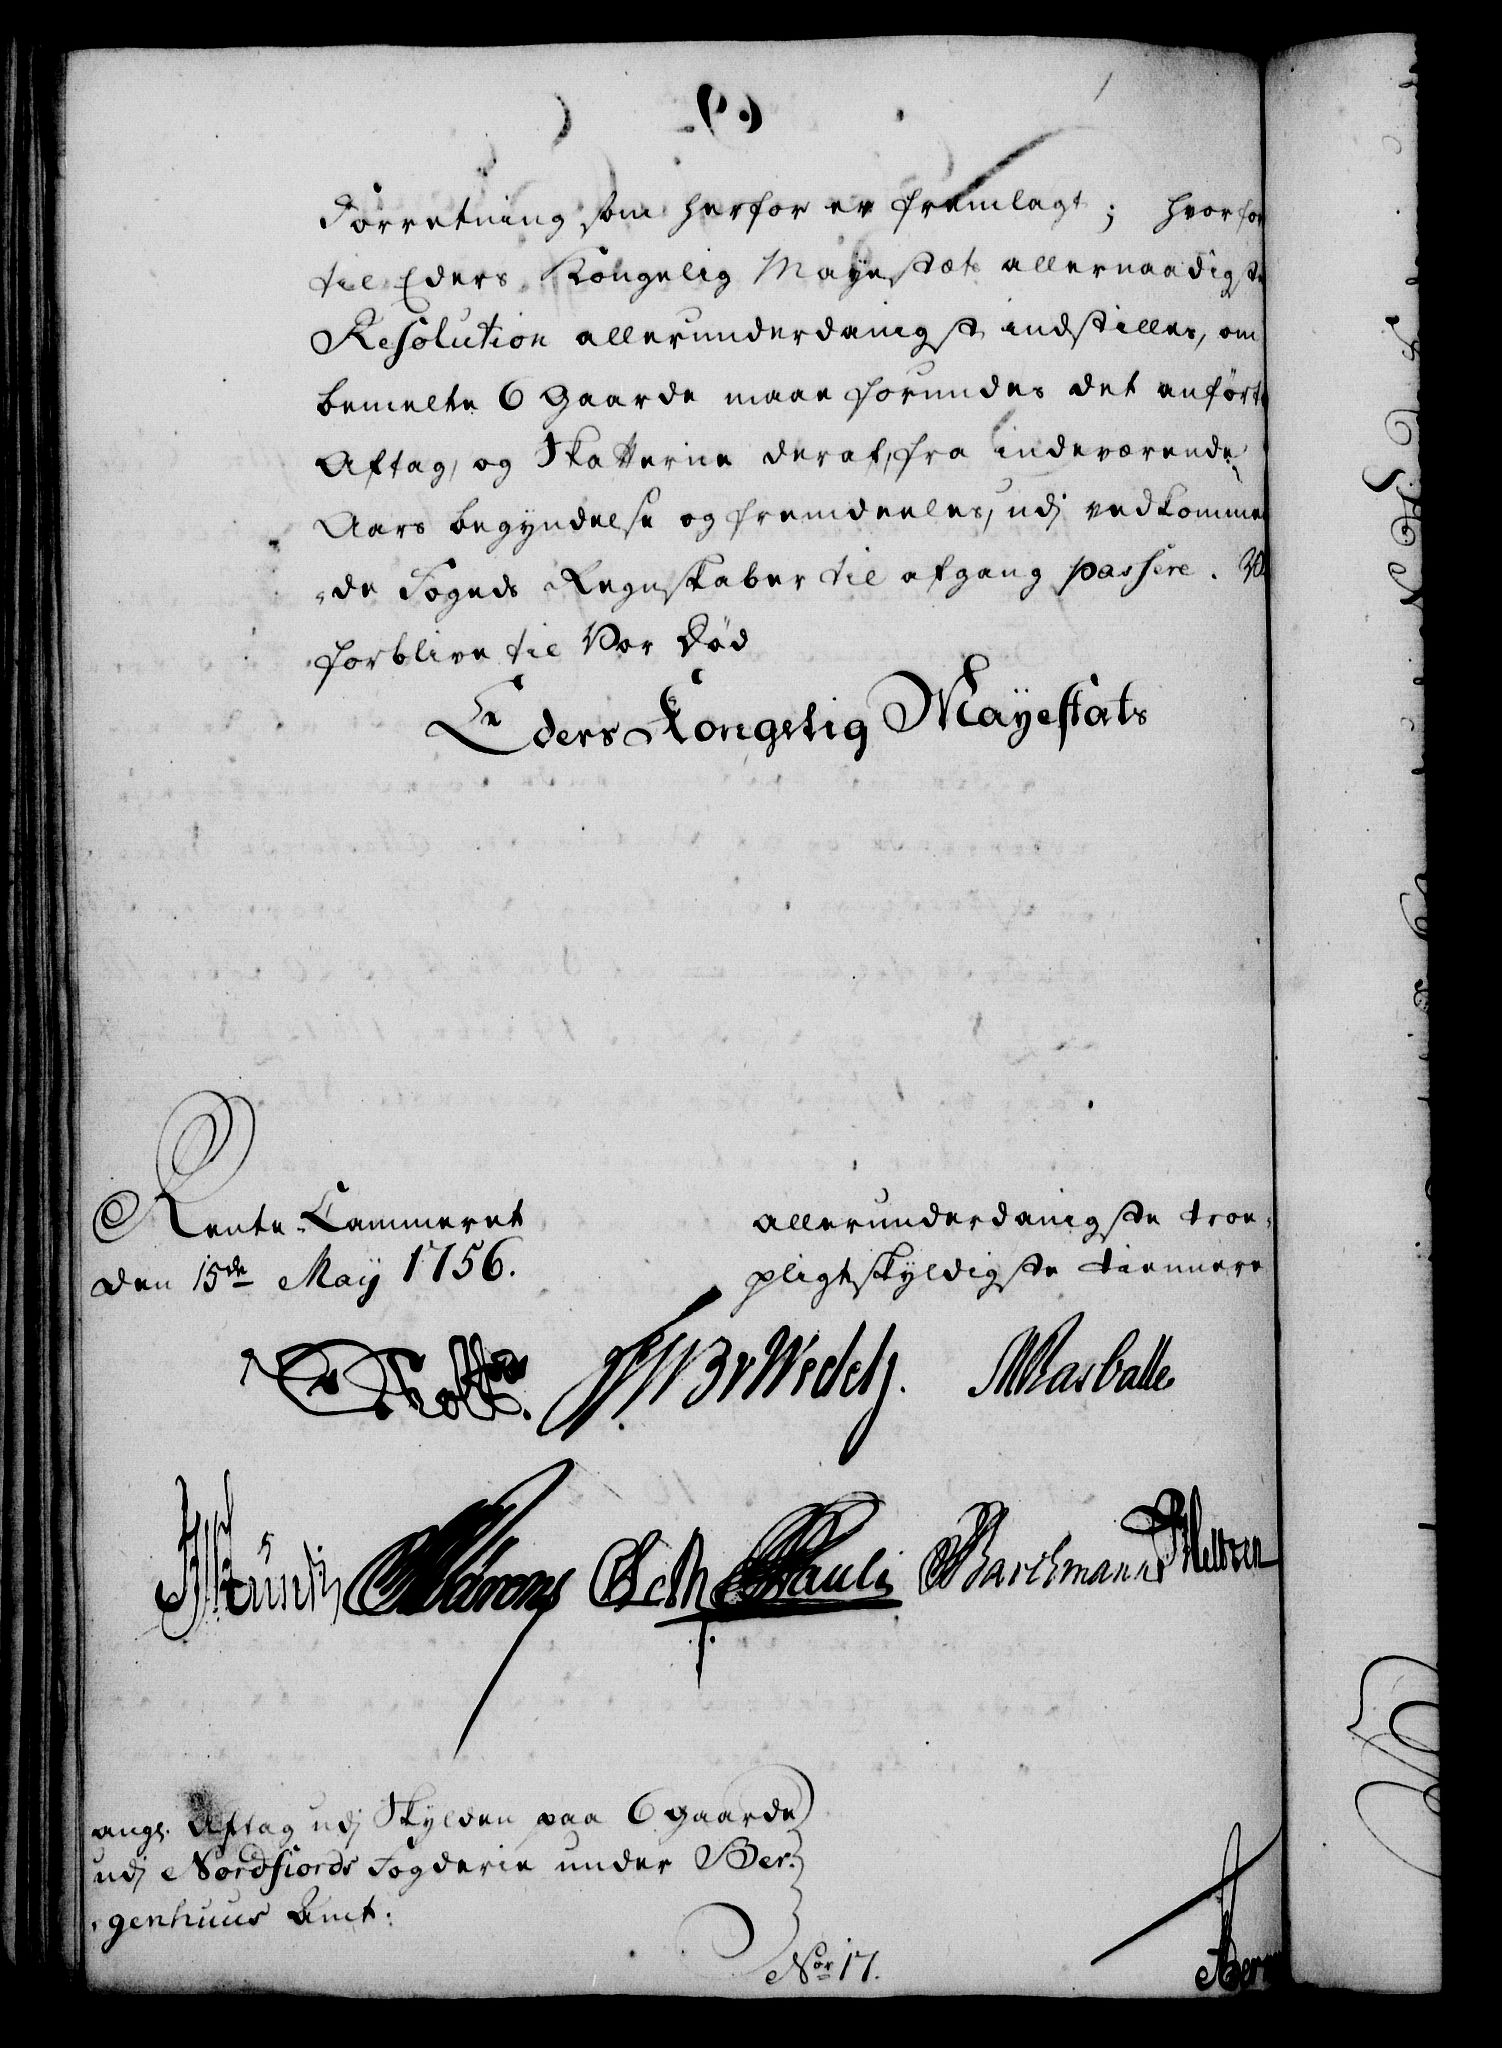 Forretning som herfor er fremlagt; hvorfor
til Eders Kongelig Mayestæts allernaadigste
Resolution allerunderdanigst indstilles, om
bemelte 6 Gaarde maae forundes det anførte
Aftag, og Skatterne deraf, fra indeværende
Aars begyndelse og fremdeeles, udj vedkommen
-de Fogeds Regnskaber til afgang passere. Vi
forblive til Vor Død
Eders Kongelig Mayestæts
Rente-Cammeret
den 15de May 1756.
allerunderdanigste troe-
pligtskyldigste tiennere
Holstein
Wedelj.
MBasballe
Pauli Barchmann
ang: Aftag udj Skylden paa 6 gaarde
udj Nordfiords Fogderie under Ber-
-genhuus Amt:
Nor 17.